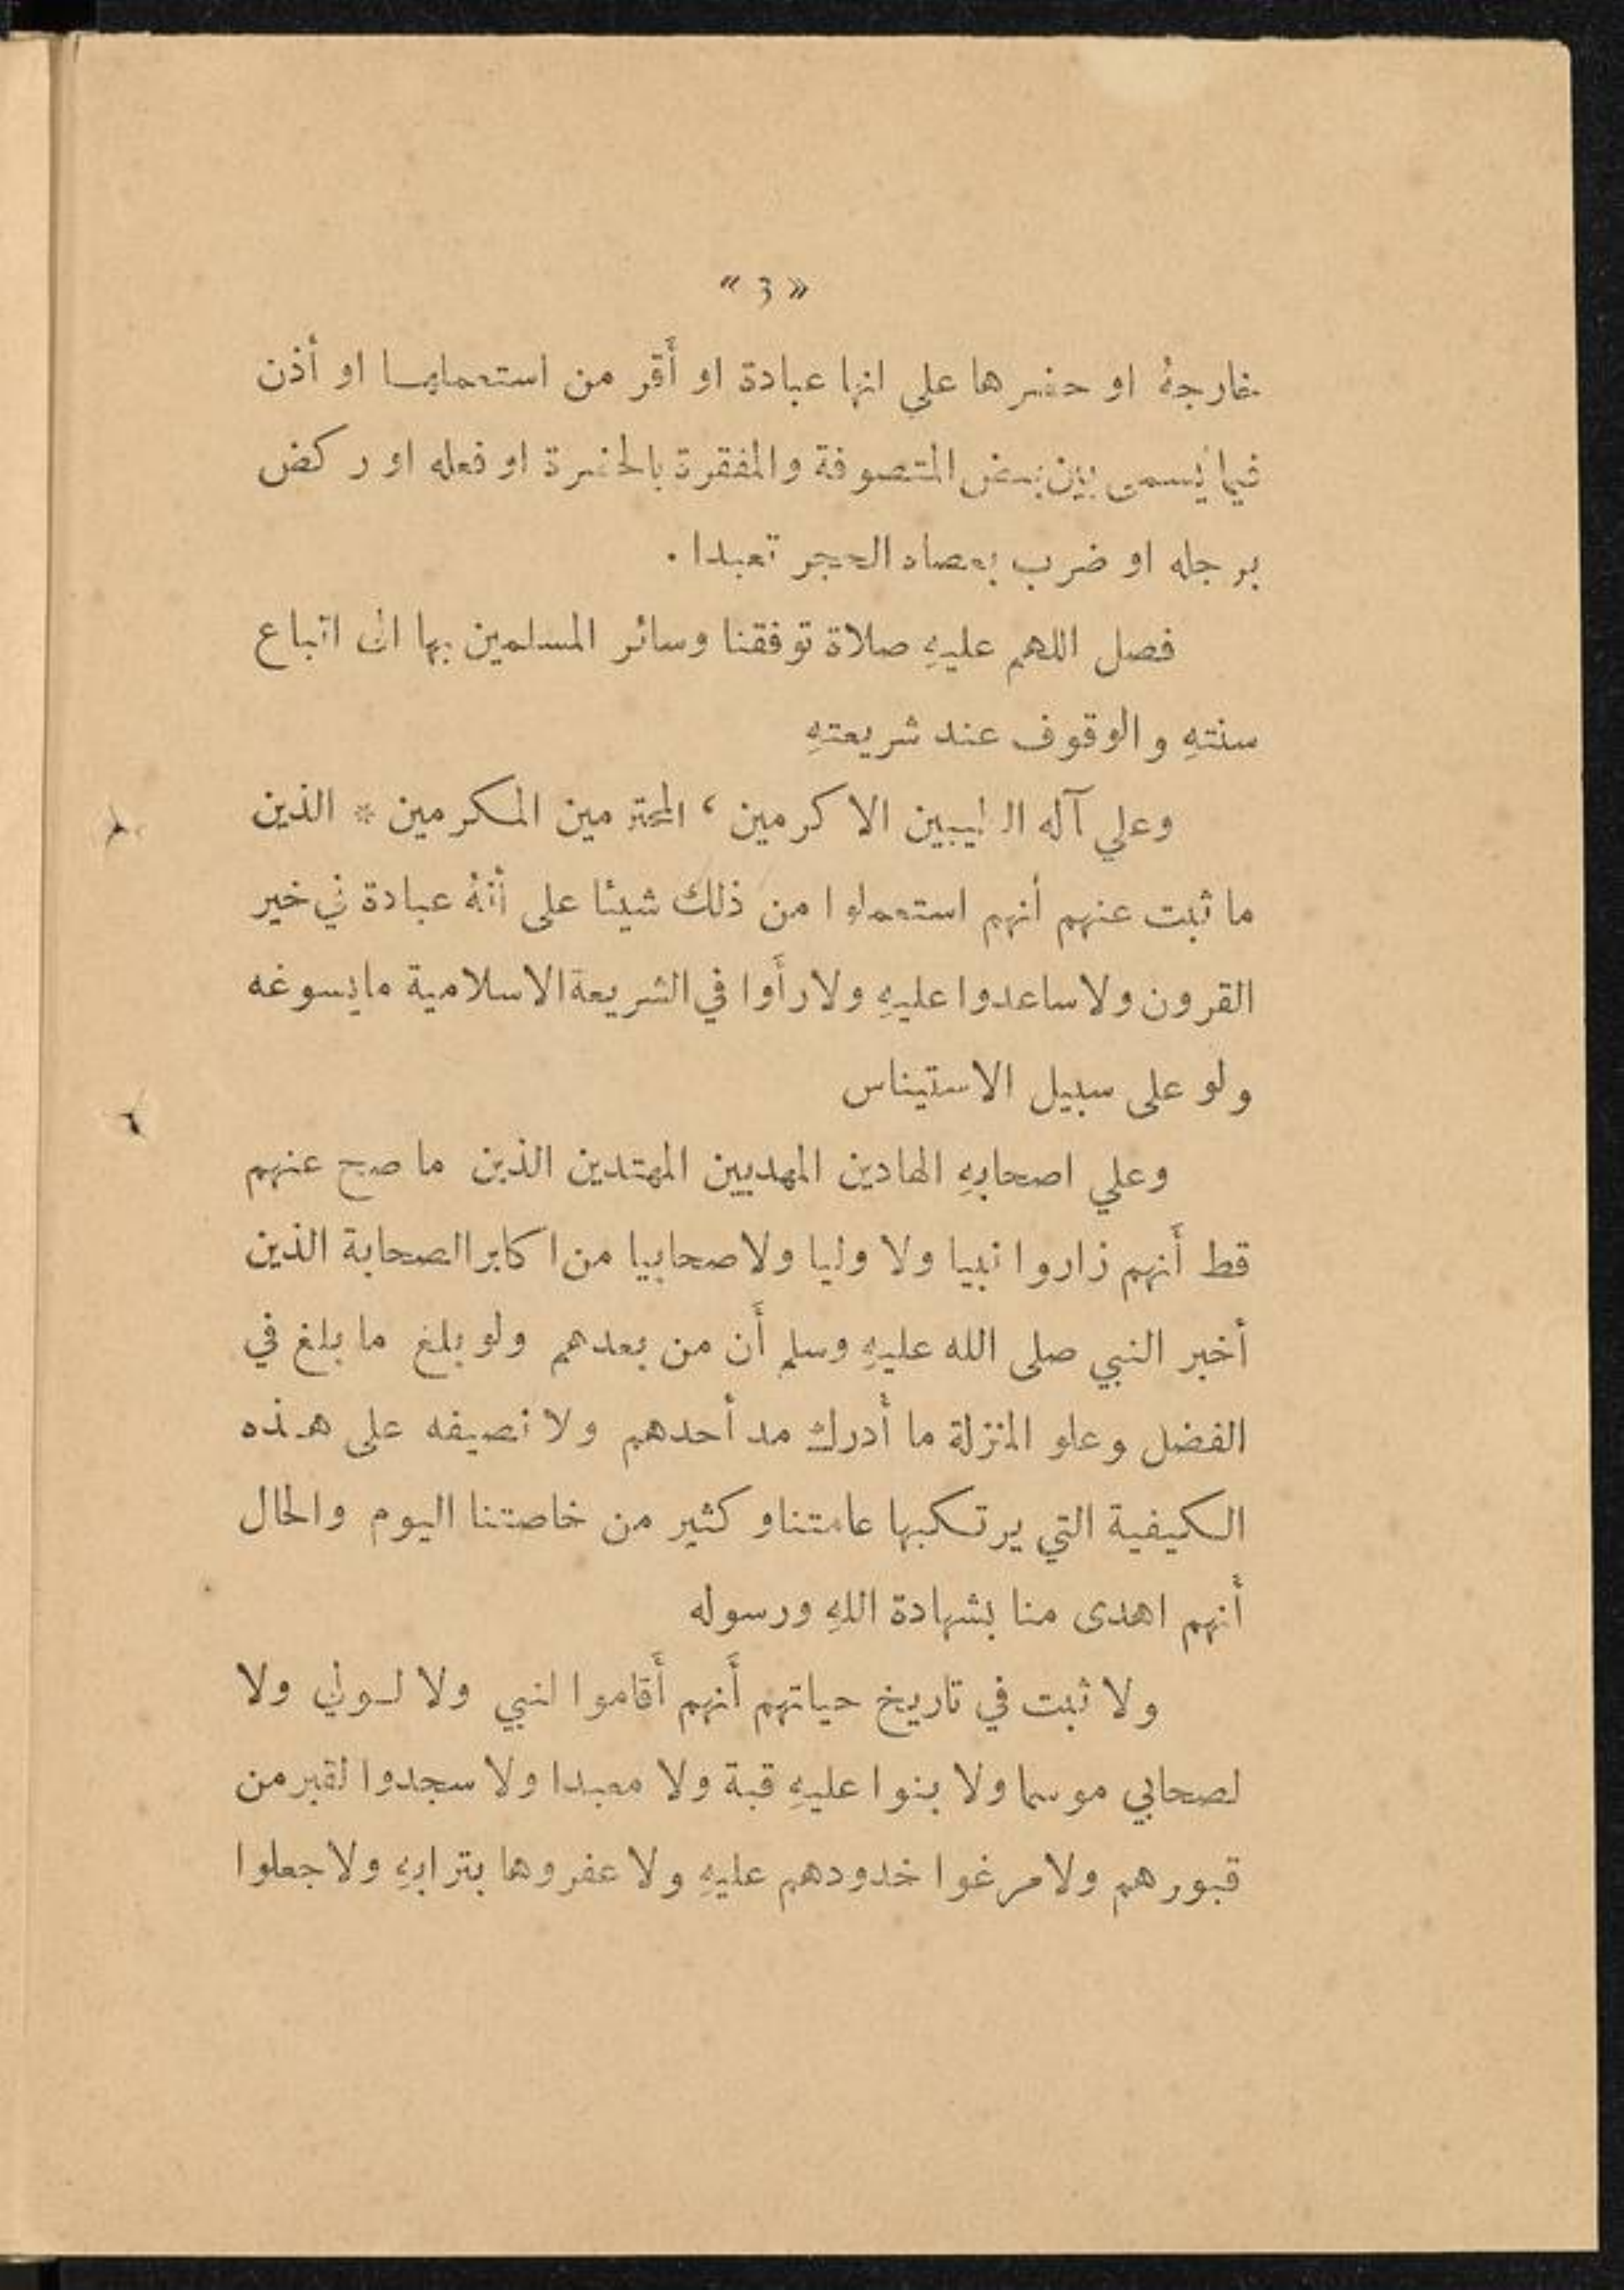 « 3 »
خارجهُ او حضرها علي انها عبادة او أَقر من استعملها او أذن
فيما يُسمى بين بعض المتصوفة والمفقرة بالحضرة او فعله او ركض
برجله او ضرب بعصاه الحجر تعبدا .
فصل اللهم عليهِ صلاة توفقنا وسائر المسلمين بها الى اتباع
سنتهِ والوقوف عند شريعتهِ
وعلي آله الطيبين الاكرمين ، المحترمين المكرمين * الذين
ما ثبت عنهم أنهم استعملوا من ذلك شيئا على أنهُ عبادة في خير
القرون ولا ساعدوا عليهِ ولا رأَوا في الشريعة الاسلامية ما يسوغه
ولو على سبيل الاستيناس
وعلي اصحابهِ الهادين المهديين المهتدين الذين ما صح عنهم
قط أَنهم زاروا نبيا ولا وليا ولا صحابيا من اكابر الصحابة الذين
أخبر النبي صلى الله عليهِ وسلم أَن من بعدهم ولو بلغ ما بلغ في
الفضل وعلو المنزلة ما أدرك مد أحدهم ولا نصيفه على هذه
الكيفية التي يرتكبها عامتنا وكثير من خاصتنا اليوم والحال
أَنهم اهدى منا بشهادة اللهِ ورسوله
ولا ثبت في تاريخ حياتهم أَنهم أَقاموا لنبي ولا لولي ولا
لصحابي موسما ولا بنوا عليهِ قبة ولا معبدا ولا سجدوا لقبر من
قبورهم ولا مرغوا خدودهم عليهِ ولا عفروها بترابهِ ولا جعلوا